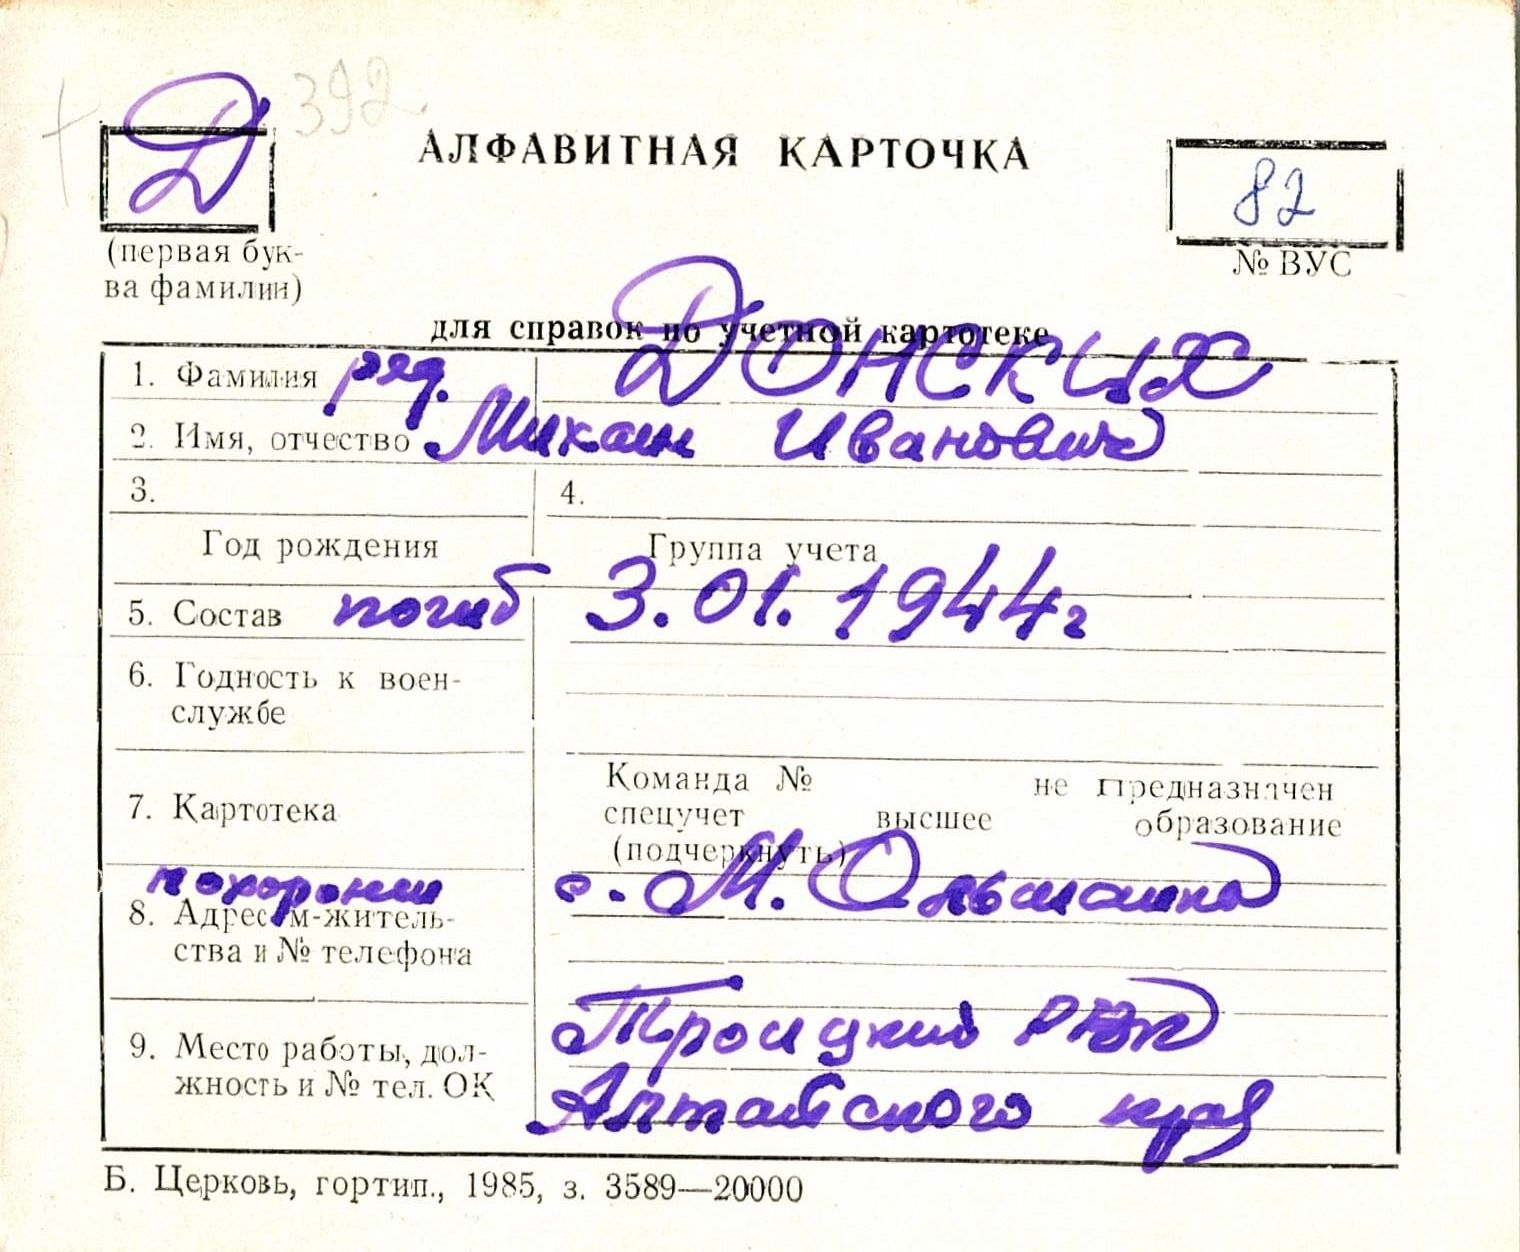 Д 392
АЛФАВИТНАЯ КАРТОЧКА
82
(первая бук-
ва фамилии)
№ ВУС
для справок по учетной картотеке
1. Фамилия ряд. Донских
2. Имя, отчество Михаил Иванович
3. 4.
Год рождения Группа учета
5. Состав погиб 3.01.1944г
6. Годность к воен-
службе
Команда № не предназначен
7. Картотека спецучет высшее образование
(подчеркнуть)
похоронен с. М. Ольшанка
8. Адрес м-житель-
ства и № телефона
Троицкий РВК
9. Место работы, дол-
жность и № тел. ОК
Алтайского края
Б. Церковь, гортип., 1985, з. 3589—20000